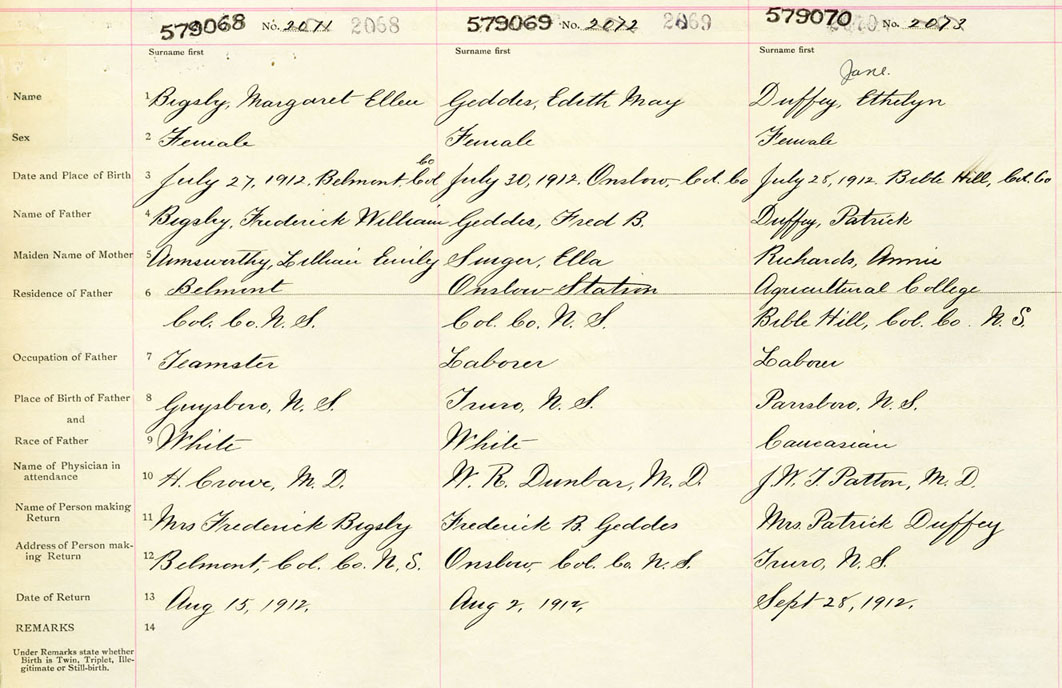 579068 No. 2071 2068 579069 No. 2072 2069 579070 No. 2073
Surname first Surname first Surname first
Jane.
Name 1 Bigsby, Margaret Ellen Geddes, Edith May Duffey, Ethelyn
Sex 2 Female Female Female
Co
Date and Place of Birth 3 July 27, 1912. Belmont, Col July 30, 1912. Onslow, Col. Co July 28, 1912. Bible Hill, Col. Co
Name of Father 4 Bigsby, Frederick William Geddes, Fred B. Duffey, Patrick
Maiden Name of Mother 5 Lillian Emily Ella Richards, Annie
Residence of Father 6 Belmont Onslow Station Agricultural College
Col. Co. N. S. Col. Co. N. S. Bible Hill, Col. Co. N. S.
Occupation of Father 7 Teamster Laborer Laborer
Place of Birth of Father 8 Guysboro, N. S. Truro, N. S. Parrsboro, N. S.
and
Race of Father 9 White White Caucasian
Name of Physician in
attendance 10 H. Crowe, M. D. W. R. Dunbar, M. D. J. W. T. Patton, M. D.
Name of Person making
Return 11 Mrs Frederick Bigsby Frederick B. Geddes Mrs. Patrick Duffey
Address of Person mak-
ing Return 12 Belmont, Col. Co. N. S. Onslow, Col. Co. N. S. Truro, N. S.
Date of Return 13 Aug 15, 1912. Aug 2, 1912, Sept 28, 1912.
REMARKS 14
Under Remarks state whether
Birth is Twin, Triplet, Ille-
gitimate or Still-birth.